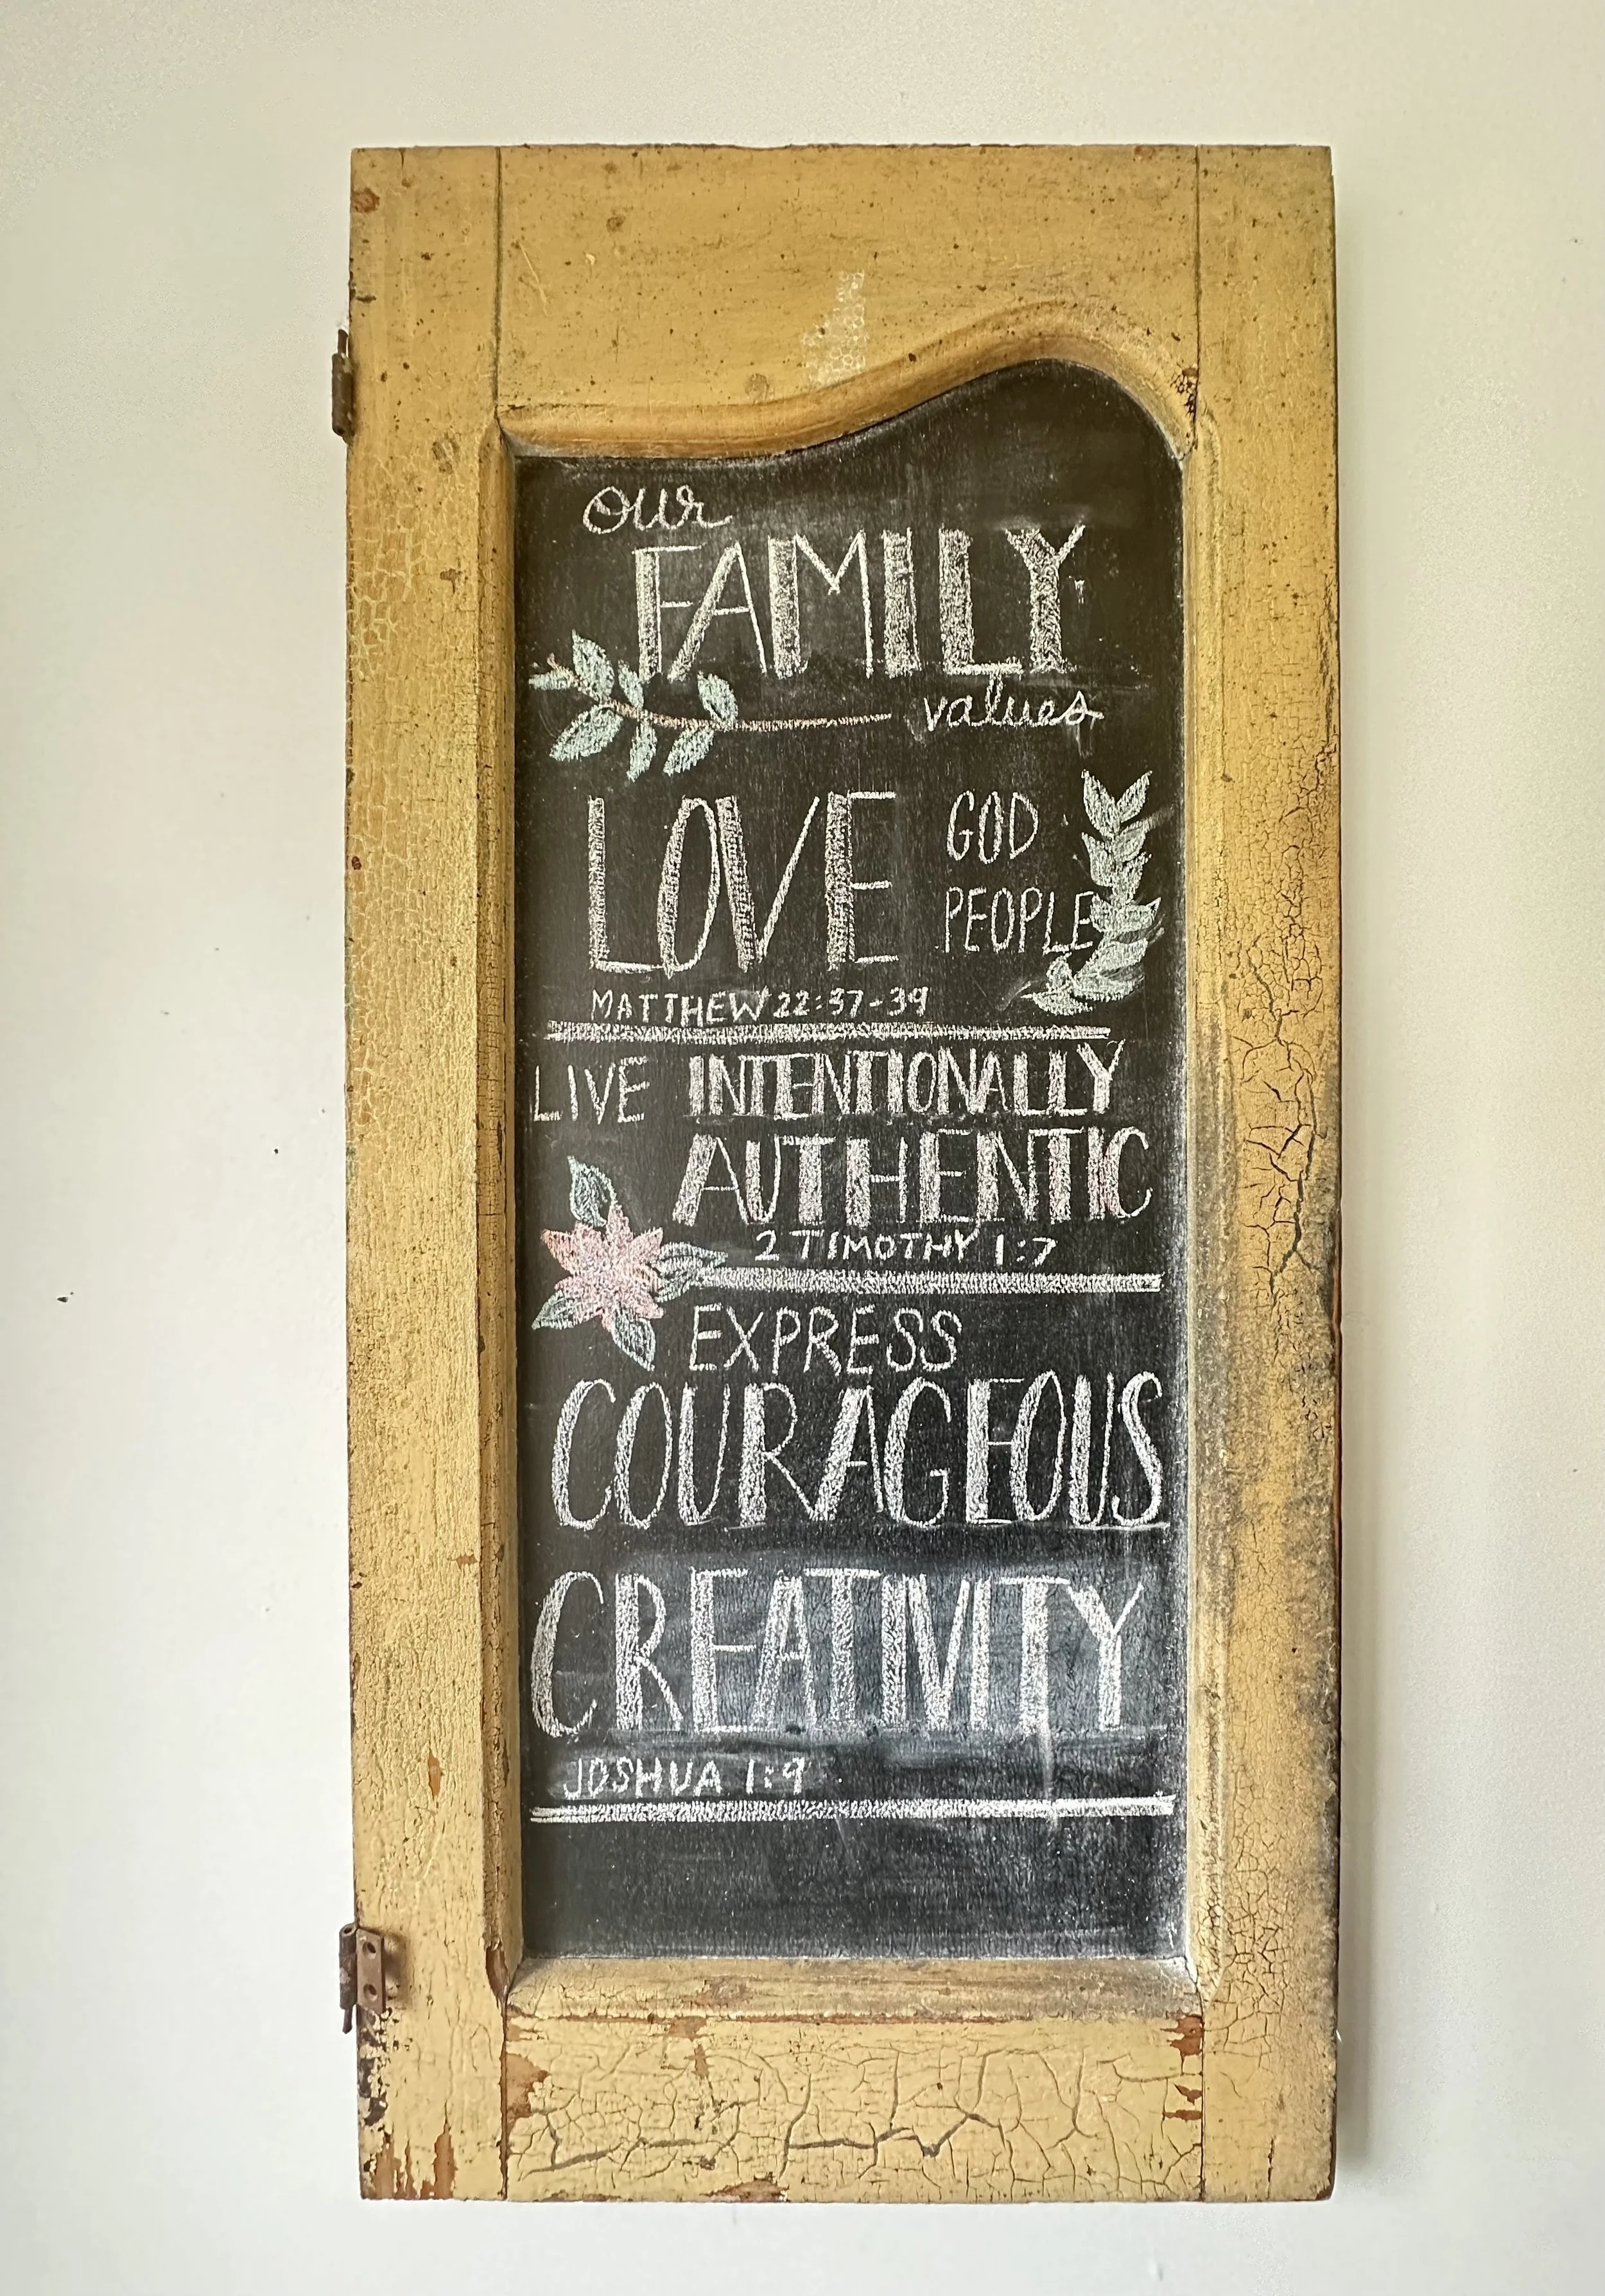 our
FAMILY
values
LOVE GOD
PEOPLE
MATTHEW 22:37-39
LIVE INTENTIONALLY
AUTHENTIC
2 TIMOTHY 1:7
EXPRESS
COURAGEOUS
CREATIVITY
JOSHUA 1:9